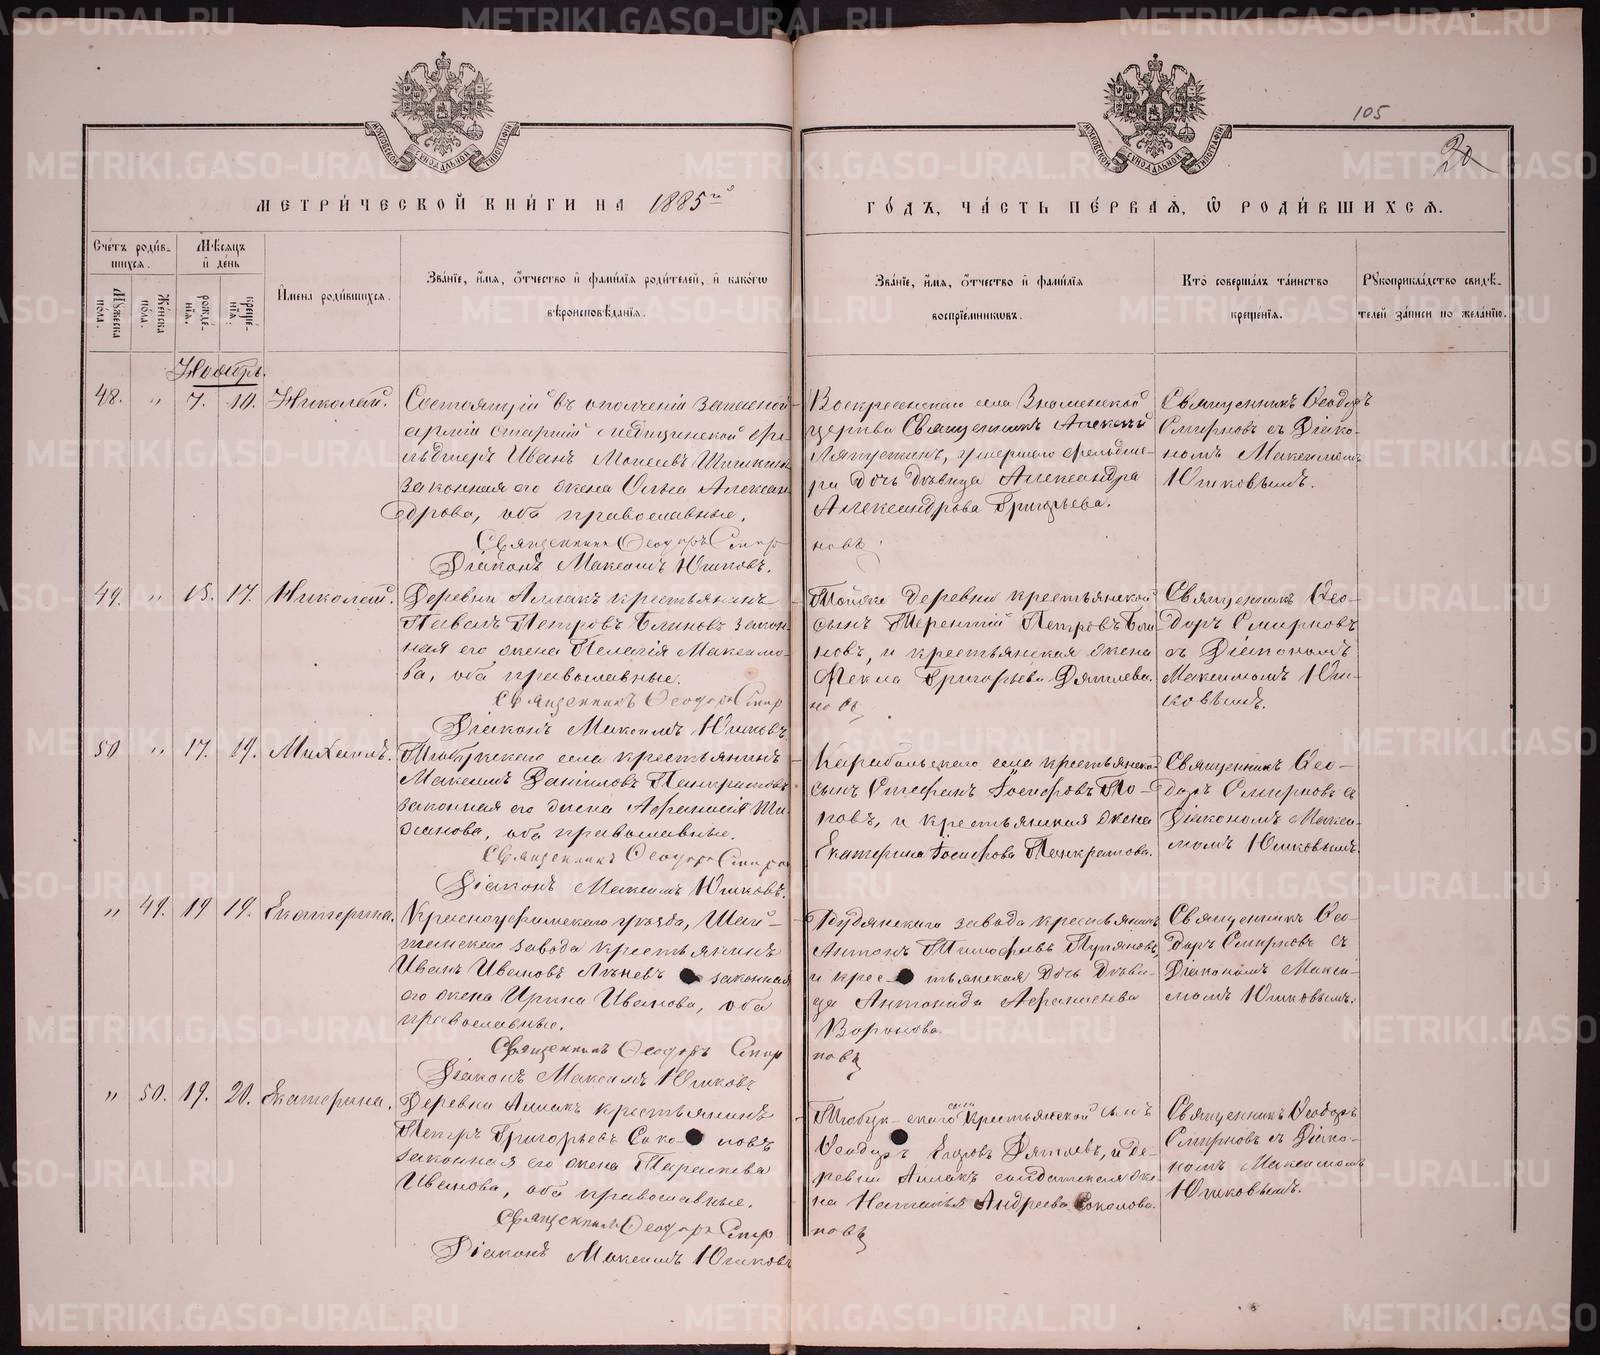 105
20
МЕТРИ́ЧЕСКОЙ КНИ́ГИ НА 1885й
ГО́ДЪ, ЧА́СТЬ ПЕ́РВАѦ, Ѿ РОДИ́ВШИХСѦ.
Сче́тъ роди́в-
шихсѧ.
Мѣ́сѧцъ
и҆ де́нь
И҆мена̀ роди́вшихсѧ.
Зва́нїе, и҆́мѧ, ѻ҆́тчество и҆ фами́лїѧ роди́телей, и҆ како́гѡ
вѣроисповѣ́данїѧ.
Зва́нїе, и҆́мѧ, ѻ҆́тчество и҆ фами́лїѧ
воспрїе́мникѡвъ.
Кто̀ соверша́лъ та́инство
креще́нїѧ.
Рꙋкоприкла́дство свидѣ́-
телей за́писи по жела́нїю.
Мꙋ́жеска по́ла.
Же́нска по́ла.
рожде́-нїѧ.
креще́-нїѧ.
Ноябрь.
48. " 7. 10. Николай.
Состоящій въ ополченіи запасной
арміи старшій медицинской фе-
льдшеръ Иванъ Моисеевъ Шишкинъ
законная его жена Ольга Алексан-
дрова, оба православные.
Священникъ Ѳеодоръ Смир
новъ
Діаконъ Максимъ Юшковъ.
Воскресенской села Знаменской
церкви Священникъ Алексѣй
Ляпустинъ, умершаго фельдше-
ра дочь дѣвица Александра
Александрова Григорьева.
Священникъ Ѳеодоръ
Смирновъ съ Діако-
номъ Максимомъ
Юшковымъ.
49. " 15. 17. Николай.
Деревни Аллакъ крестьянинъ
Павелъ Петровъ Блиновъ закон-
ная его жена Пелагія Максимо-
ва, оба православные.
Священникъ Ѳеодоръ Смир
новъ
Діаконъ Максимъ Юшковъ
Тойже деревни крестьянской
сынъ Терентій Петровъ Бли-
новъ, и крестьянская жена
Ѳекла Григорьева Дятлева.
Священникъ Ѳео-
доръ Смирновъ
съ Діакономъ
Максимомъ Юш-
ковымъ.
50 " 17. 19. Михаилъ.
крестьянинъ
Максимъ Даніиловъ Панкратовъ
законная его жена Афанасія
оба православные.
Священникъ Ѳеодоръ Смирно
Діаконъ Максимъ Юшковъ.
села крестьянско-
сынъ Стефанъ Іосифовъ По-
повъ, и крестьянская жена
Екатерина Іосифова Панкратова.
Священникъ Ѳео-
доръ Смирновъ съ
Діакономъ Макси-
момъ Юшковымъ.
" 49. 19 19. Екатерина.
Красноуфимскаго уѣзда, Шай-
танскаго завода крестьянинъ
Иванъ Ивановъ законная
его жена Ирина Иванова, оба
православные.
Священникъ Ѳеодоръ Смир
новъ
Діаконъ Максимъ Юшковъ
завода крестьянинъ
Антонъ Тимофѣевъ
и крес тьянская дочь дѣви-
ца Антонида Афанасьева
Воронова.
Священникъ Ѳео-
доръ Смирновъ съ
Діакономъ Макси-
момъ Юшковымъ.
" 50. 19. 20. Екатерина.
Деревни Аллакъ крестьянинъ
Петръ Григорьевъ Соко ловъ
законная его жена Параскева
Иванова, оба православные.
Священникъ Ѳеодоръ Смир
новъ
Діаконъ Максимъ Юшковъ
скаго села крестьянской сынъ
Ѳеодоръ Егоровъ Дятлевъ, и де-
ревни Аллакъ солдатская же-
на Наталья Андреева Соколова.
Священникъ Ѳеодоръ
Смирновъ съ Діако-
номъ Максимомъ
Юшковымъ.
METRIKI.GASO-URAL.RU